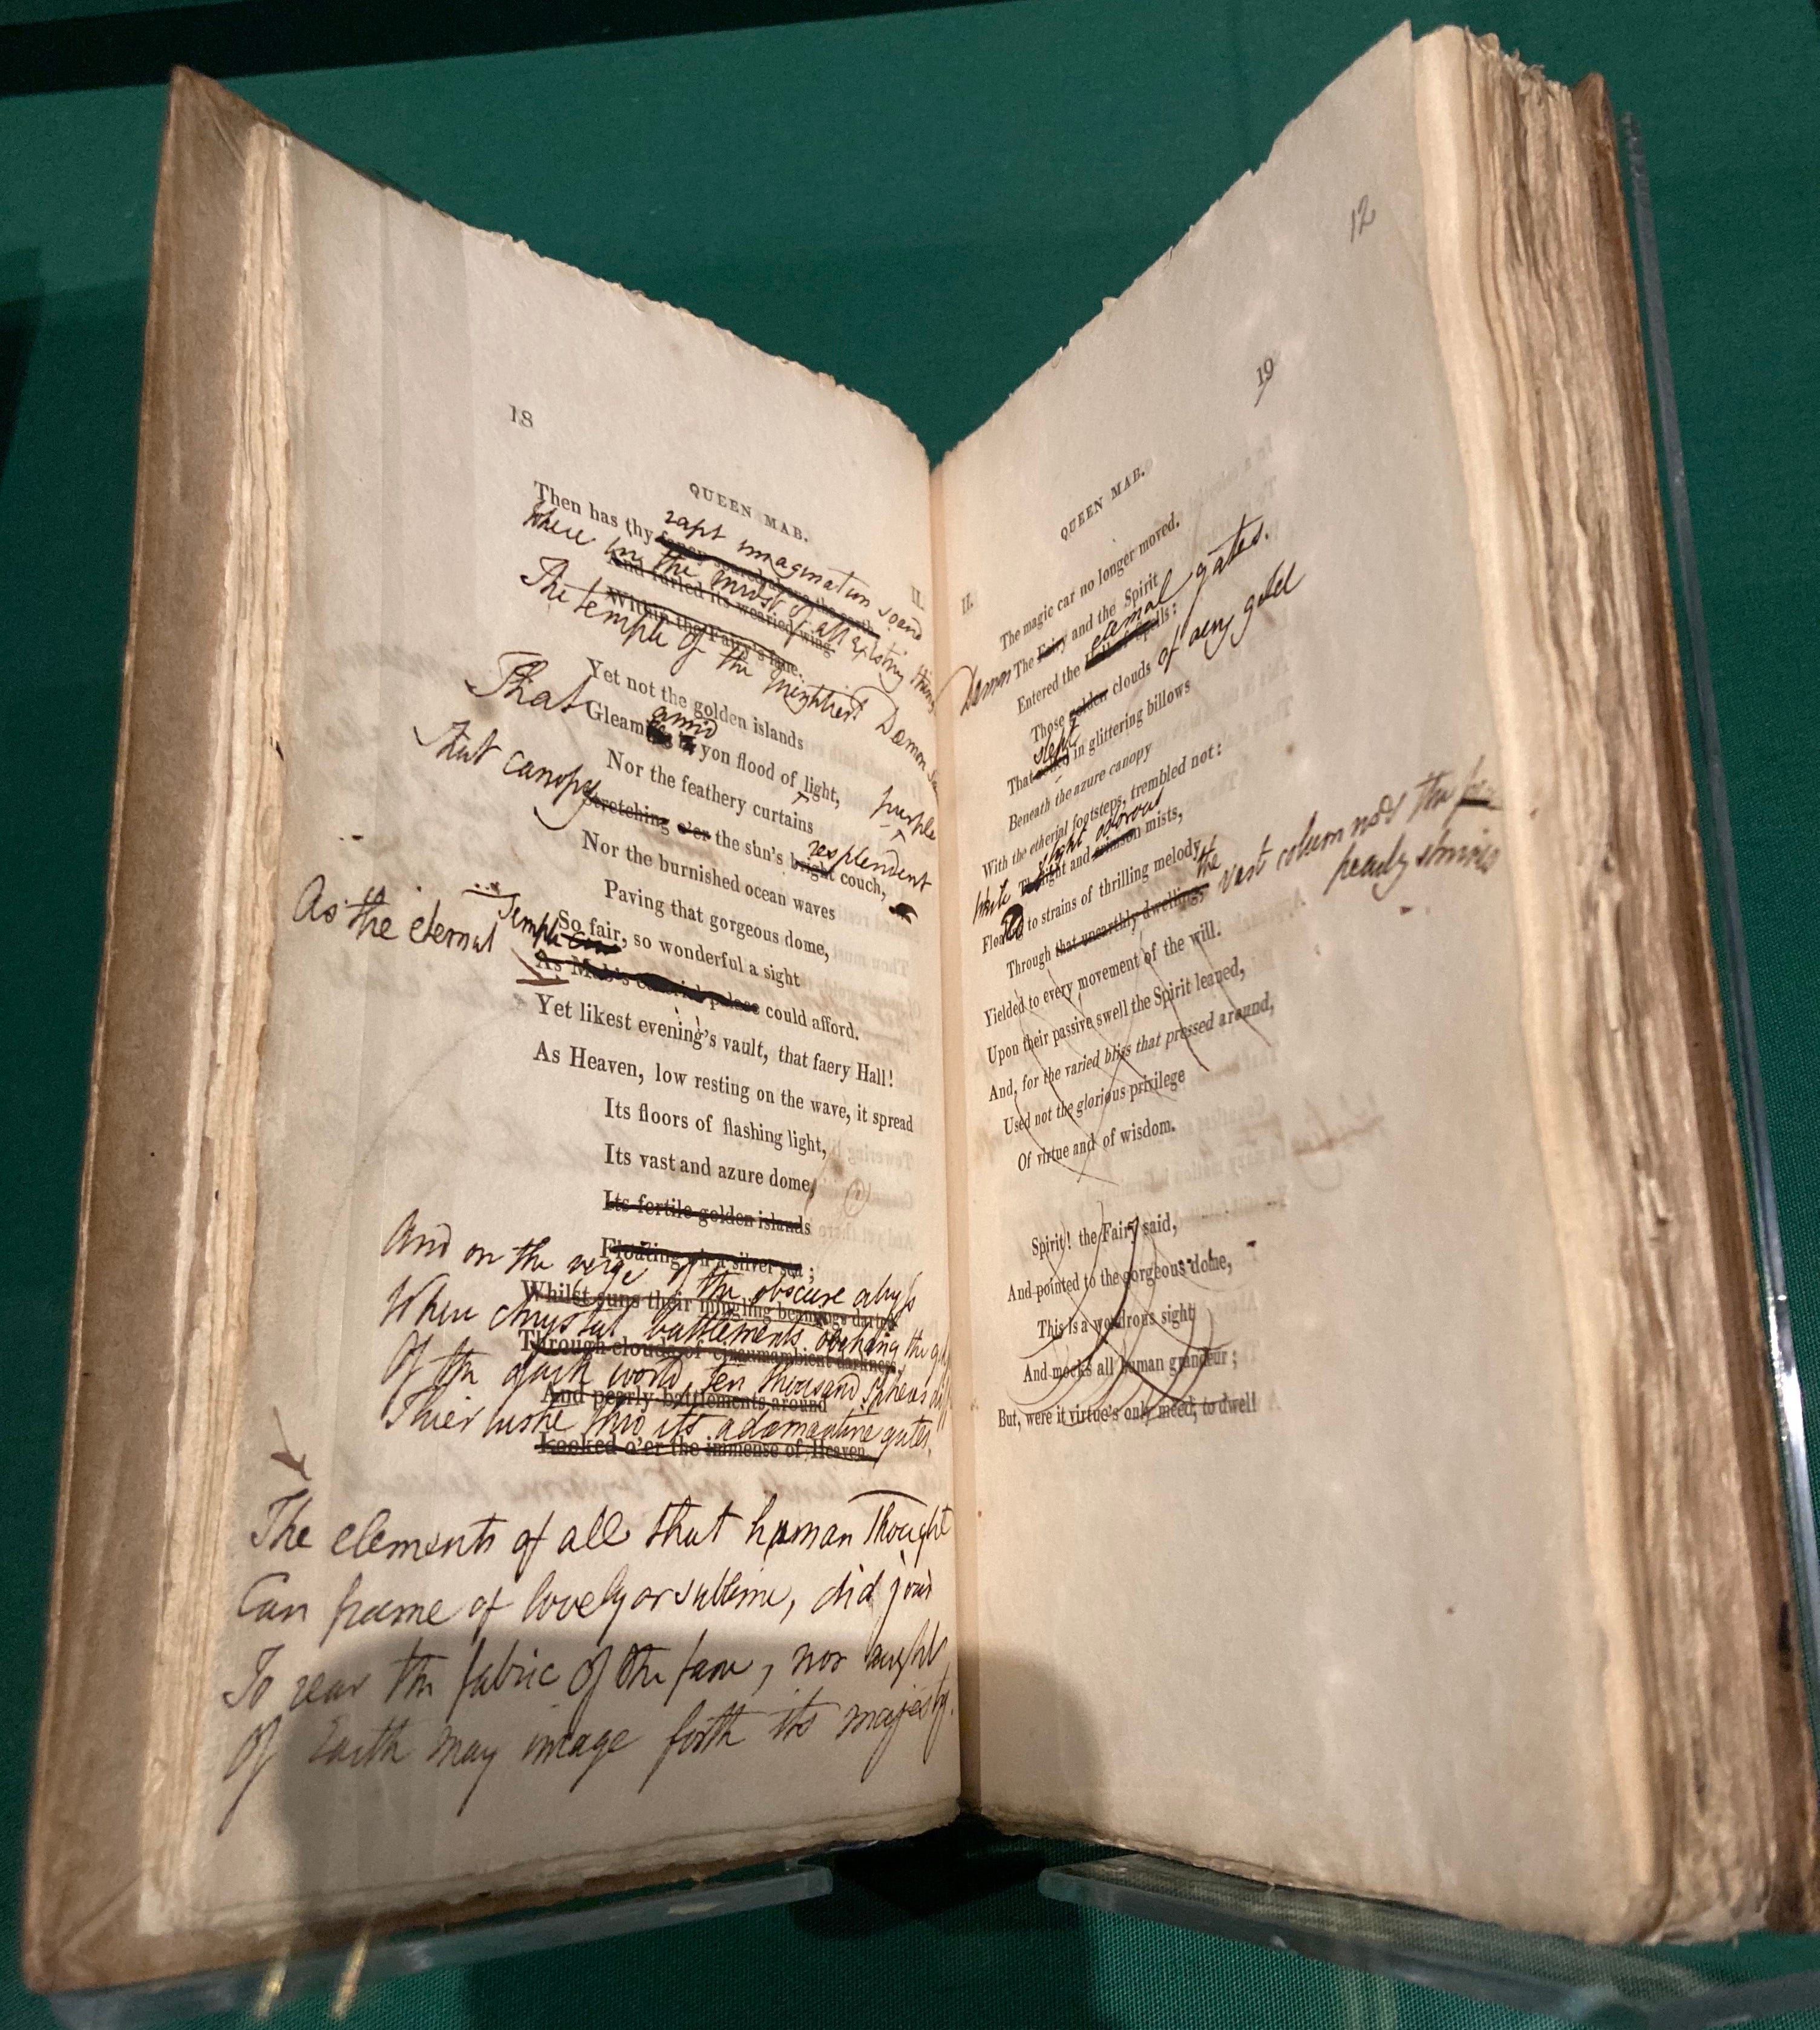 18
QUEEN MAB.
II.
Then has thy fancy soared above the earth,
rapt imagination soard
And furled its wearied wing
Where in the midst of all existing things
Within the Fairy's fane.
The temple of the mightiest Demon
Yet not the golden islands
That
Gleaming in yon flood of light,
amid
Nor the feathery curtains
purple
That canopy
Stretching o'er the sun's bright couch,
resplendent
Nor the burnished ocean waves
Paving that gorgeous dome,
So fair, so wonderful a sight
As the eternal temple
As Mab's etherial palace could afford.
Yet likest evening's vault, that faery Hall!
As Heaven, low resting on the wave, it spread
Its floors of flashing light,
Its vast and azure dome,
Its fertile golden islands
Floating on a silver sea;
And on the verge of the obscure abyss
Whilst suns their mingling beamings darted
Where chrystal battlements oerhang the
Through clouds of circumambient darkness,
Of the dark world, ten thousand spheres
And pearly battlements around
Thier lustre thro its adamantine gates.
Looked o'er the immense of Heaven.
The elements of all that human Thought
Can frame of lovely or sublime, did join
To rear the fabric of the fane, nor aught
Of Earth may image forth its majesty.
12
19
QUEEN MAB.
II.
The magic car no longer moved.
Demon The Fairy and the Spirit
eternal gates.
Entered the Hall of Spells:
Those golden clouds of aery gold
slept
That rolled in glittering billows
Beneath the azure canopy
With the etherial footsteps, trembled not:
slight odorous
While The light and crimson mists,
Floating to strains of thrilling melody
the vast columns & the
pearly shrines
Through that unearthly dwelling,
Yielded to every movement of the will.
Upon their passive swell the Spirit leaned,
And, for the varied bliss that pressed around,
Used not the glorious privilege
Of virtue and of wisdom.
Spirit! the Fairy said,
And pointed to the gorgeous dome,
This is a wondrous sight
And mocks all human grandeur;
But, were it virtue's only meed, to dwell